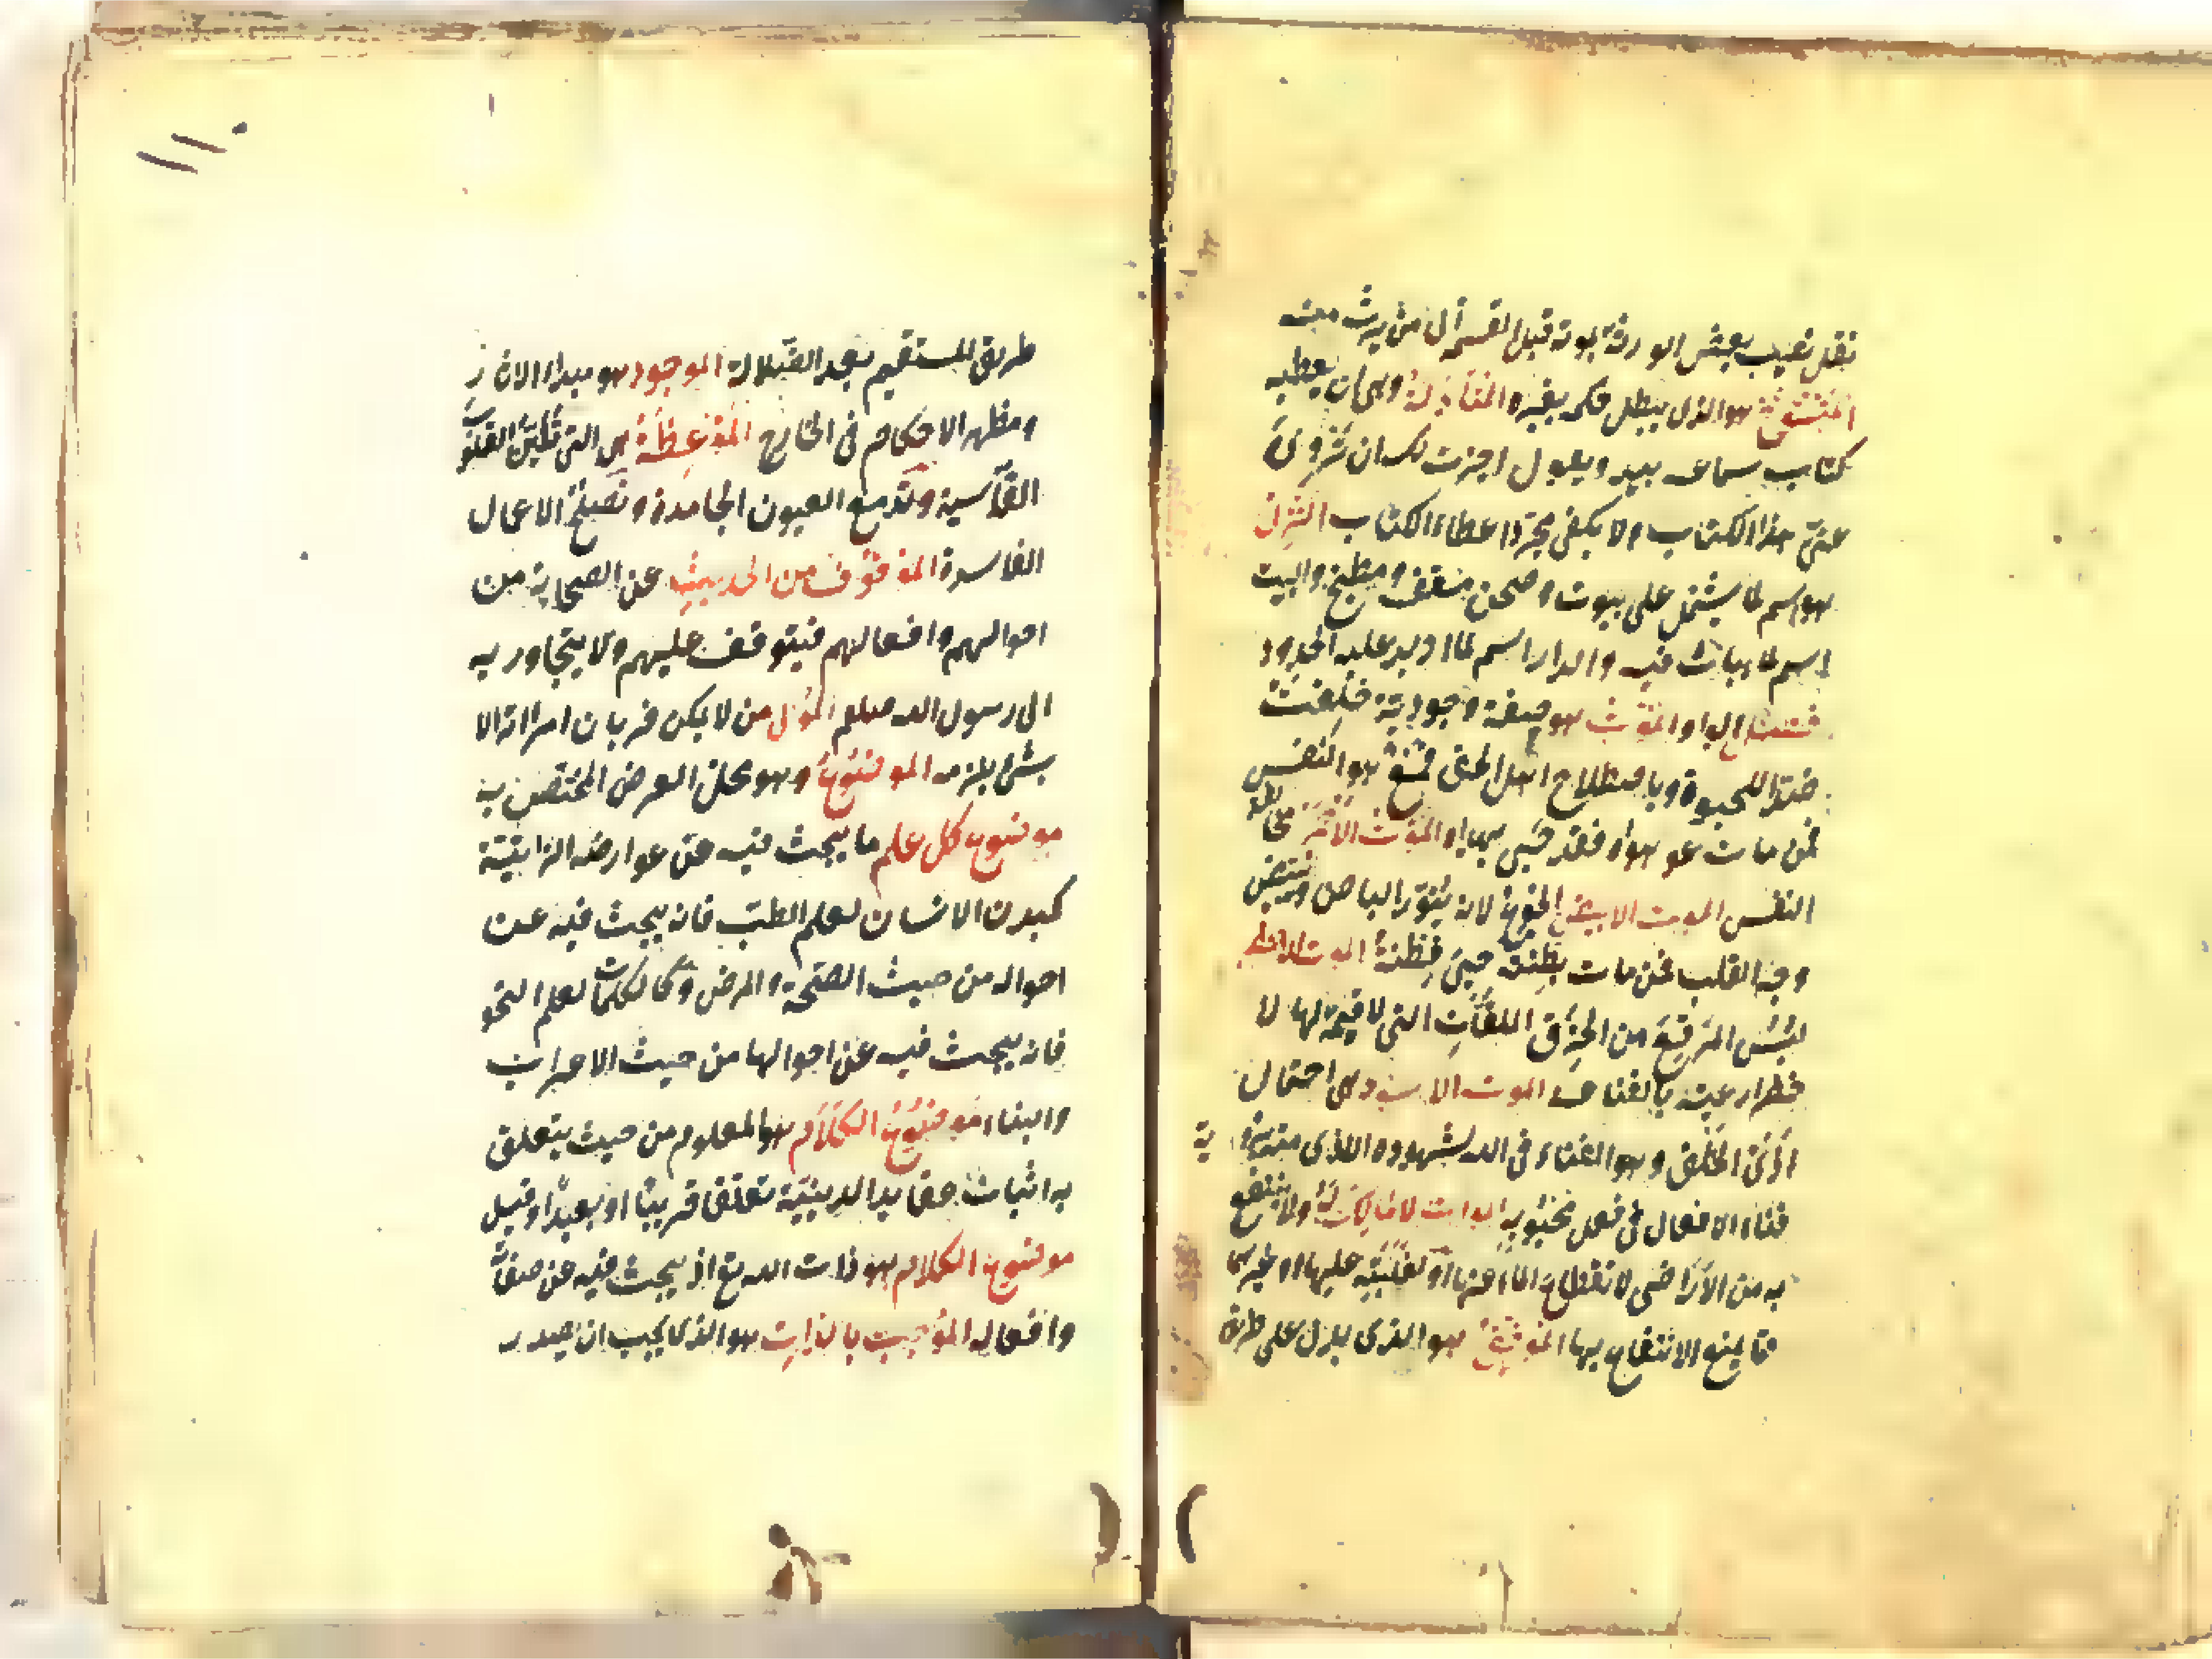 نقل نصيب بعض الورثة بموته قبل القسمة الى من يرث منه
هو الذى يبطل حكم بغيره المناولة وهى ان يعطيه
كتاب سماعه بيده ويقول اجزت لك ان تروى
عنى هذا الكتاب ولا يكفى مجرد اعطاء الكتاب المنزل
هو اسم لما يشتمل على بيوت وصحن مسقف ومطبخ والبيت
اسم لما يبات فيه والدار اسم لما ادير عليه الحدود
فصل الواو الموت هو صفة وجودية خلقت
ضدا للحيوة وباصطلاح اهل الحق قمع هو النفس
فمن مات عن هواه فقد حيى بهداه الموت الاحمر مخالفة
النفس الموت الابيض الجوع لانه ينور الباطن ويبيض
وجه القلب فمن مات بطنته حيى فطنته الموت الاخضر
لبس المرقع من الخرق الملقات التى لا قيمة لها لا
خضرار عيشه بالقناعة الموت الاسود هى احتمال
اذى الخلق وهو الفناء فى الله لشهوده الاذى منه برؤية
فناء الافعال فى فعل محبوبه الموات لا مالك له ولا ينتفع
به من الاراضى لانقطاع الماء عنها او لغلبته عليها او غيرهما
مما يمنع الانتفاع بها هو الذى يدل على طريق
١١٠
طريق المستقيم بعد الضلالة الموجود هو مبداء الاثار
ومظهر الاحكام فى الخارج الموعظة هى التى تلين القلوب
القاسية وتدمع العيون الجامدة وتصلح الاعمال
الفاسدة الموقوف من الحديث عن الصحابة من
احوالهم وافعالهم فيتوقف عليهم ولا يتجاوز به
الى رسول الله صلعم المولى من لا يمكن قربان امراته الا
بشئ يلزمه الموضوع وهو محل العرض المختص به
موضوع كل علم ما يبحث فيه عن عوارضه الذاتية
كبدن الانسان لعلم الطب فانه يبحث فيه عن
احواله من حيث الصحة والمرض وكالكلمات لعلم النحو
فانه يبحث فيه عن احوالها من حيث الاعراب
والبناء موضوع الكلام هو المعلوم من حيث يتعلق
به اثبات عقايد الدينية تعلقا قريبا او بعيدا وقيل
موضوع الكلام هو ذات الله تع اذ يبحث فيه عن صفاته
وافعاله الموجب بالذات هو الذى يجب ان يصدر